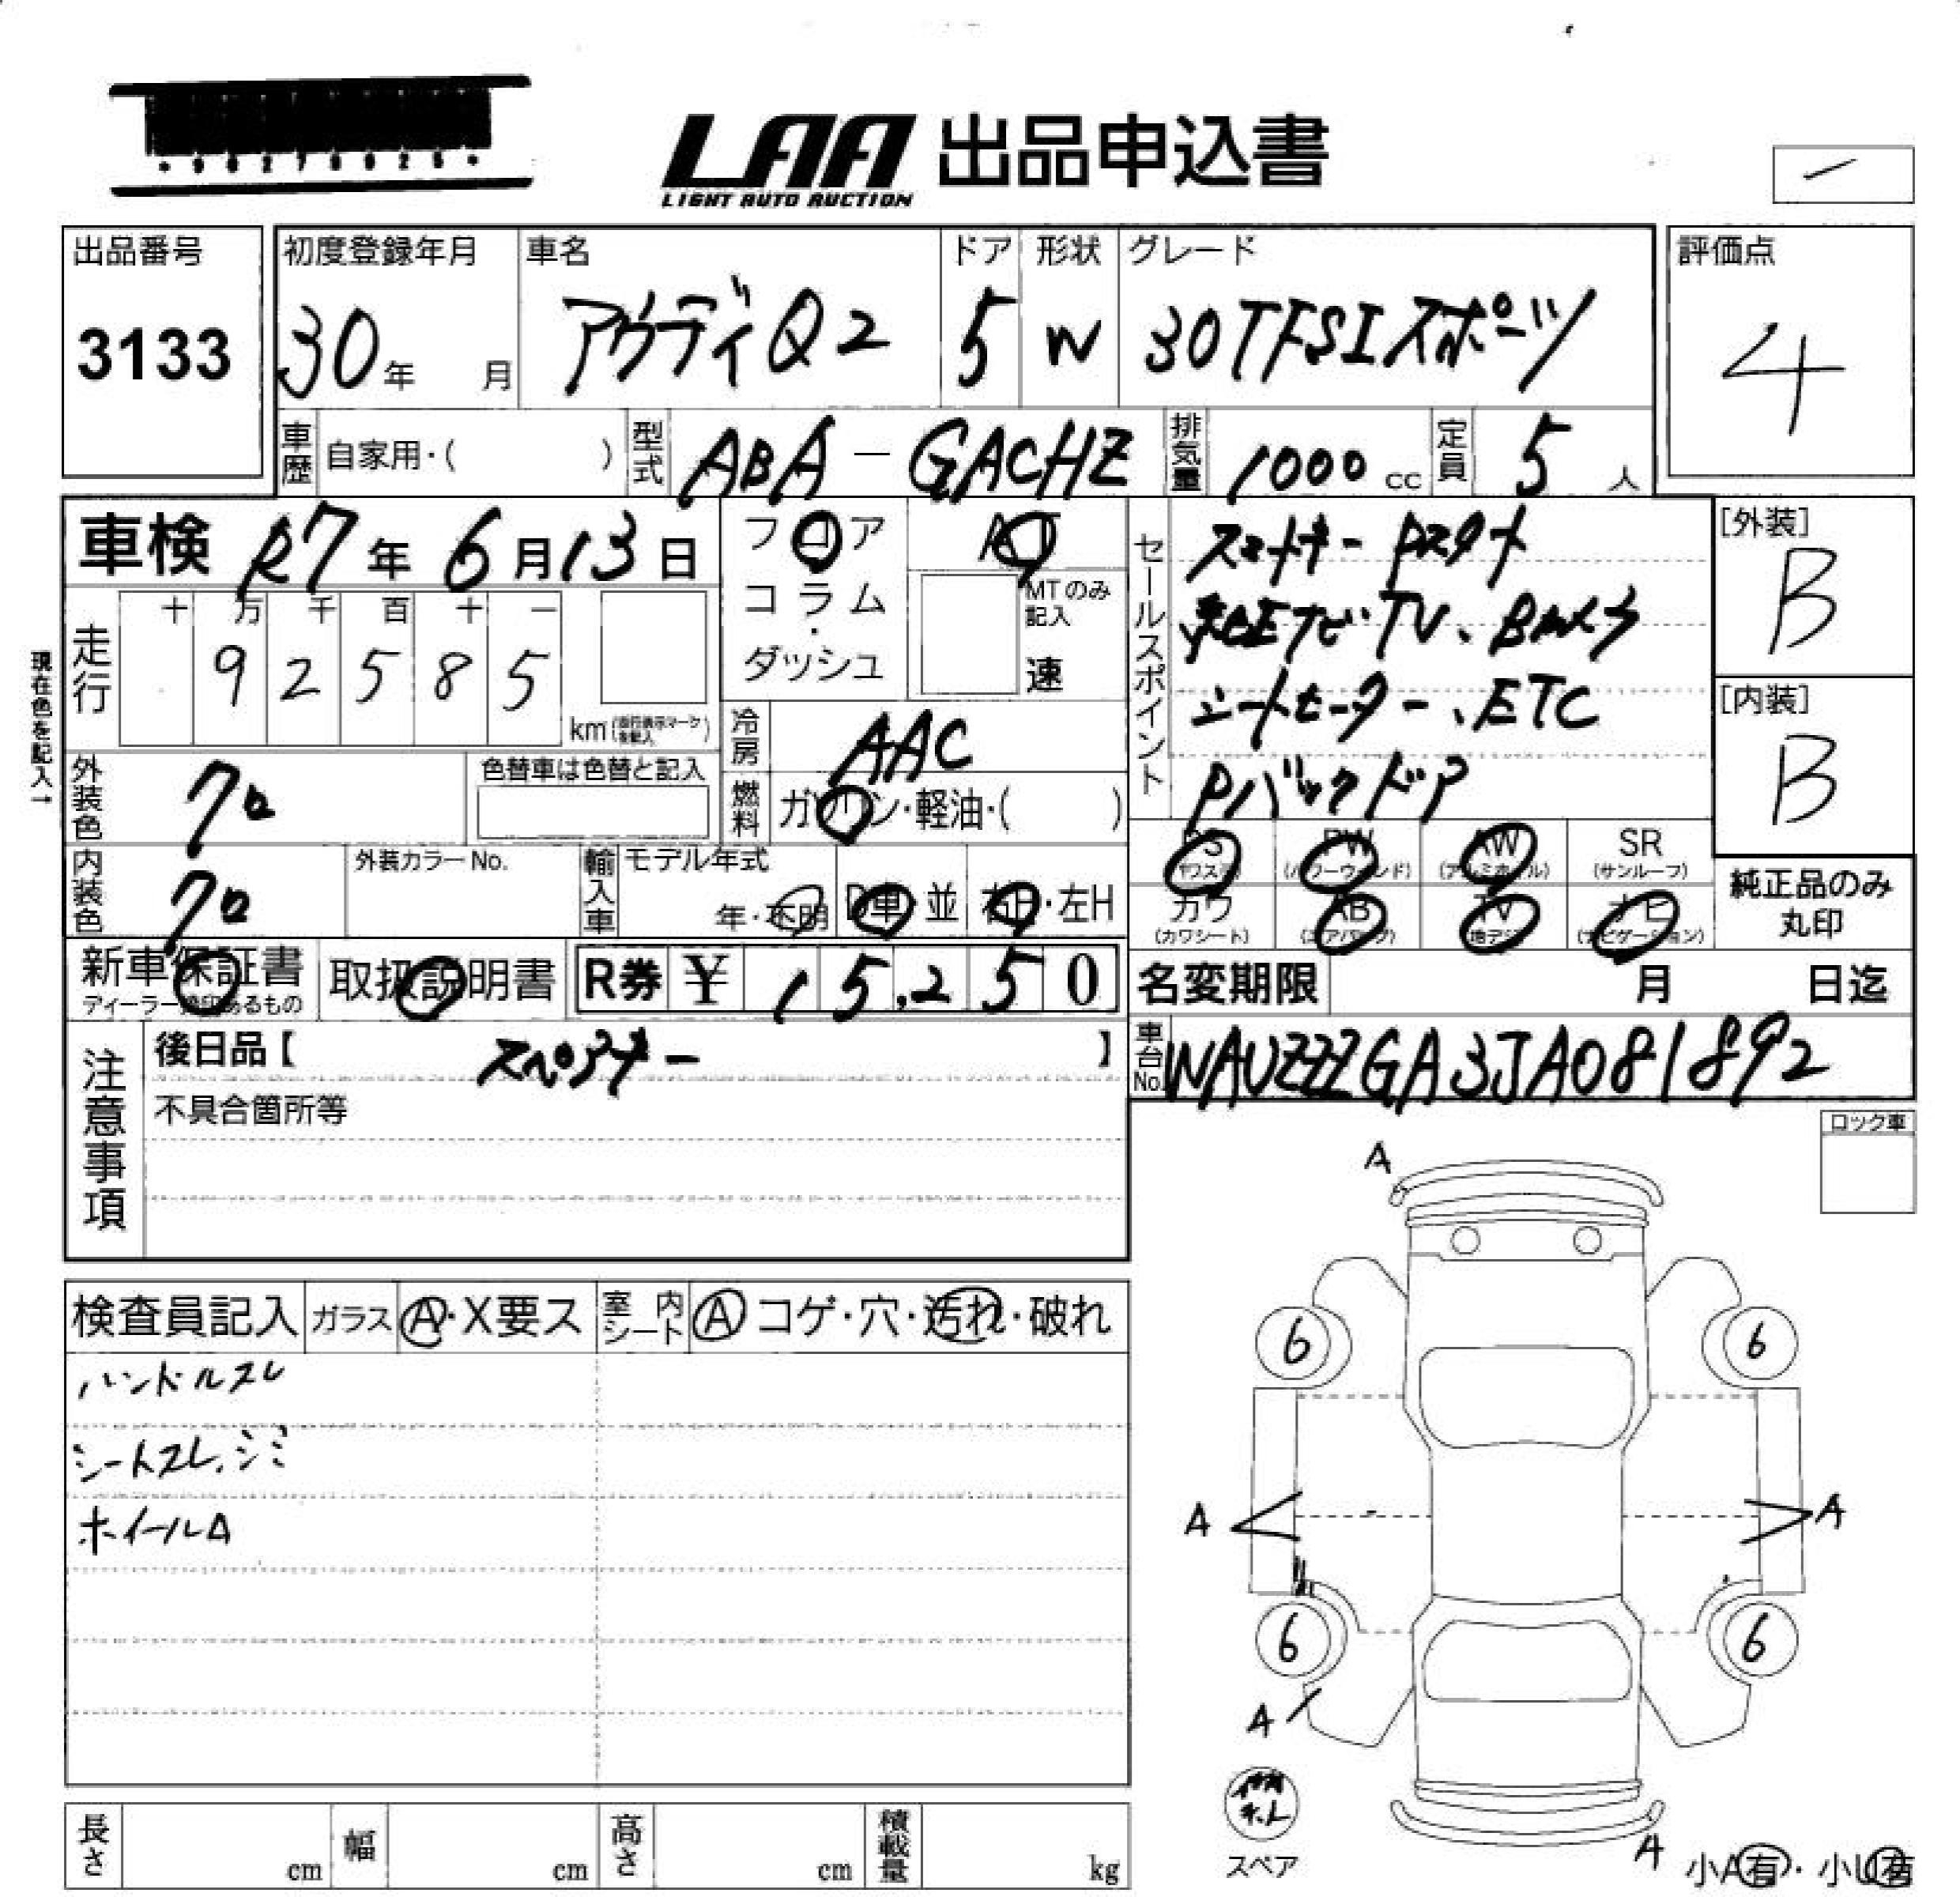 LAA 出品申込書
LIGHT AUTO AUCTION
出品番号
3133
初度登録年月
30年 月
車名
アウディQ2
ドア
5
形状
W
グレード
30TFSIスポーツ
評価点
4
車歴 自家用・( )
型式 ABA-GACHZ
排気量 1000 cc
定員 5 人
車検 R7年6月13日
フロア
コラム・
ダッシュ
AT
MTのみ
記入
速
現在色を記入→
走行
十 万 千 百 十 一
9 2 5 8 5
km
冷房 AAC
燃料 ガソリン・軽油・( )
外装色 クロ
色替車は色替と記入
内装色 クロ
外装カラーNo.
輸入車
モデル年式
年・不明
D車・並
右H・左H
セールスポイント
スマートキー Pスタート
純正ナビ・TV、Bカメラ
シートヒーター、ETC
Pバックドア
[外装]
B
[内装]
B
PS PW AW SR
(パワステ) (パワーウィンド) (アルミホイル) (サンルーフ)
カワ AB TV ナビ
(カワシート) (エアバック) (地デジ) (ナビゲーション)
純正品のみ
丸印
新車保証書
取扱説明書
R券 ¥ 15,250
名変期限 月 日迄
車台No. WAUZZZGA3JA081892
注意事項
後日品【 スペアキー 】
不具合箇所等
ロック車
検査員記入
ガラス A・X要ス
室内シート A コゲ・穴・汚れ・破れ
ハンドルスレ
シートスレ、シミ
ホイールA
A
6 6
A A
6 6
A
スペア
A
小A有・小U有
長さ cm
幅 cm
高さ cm
積載量 kg